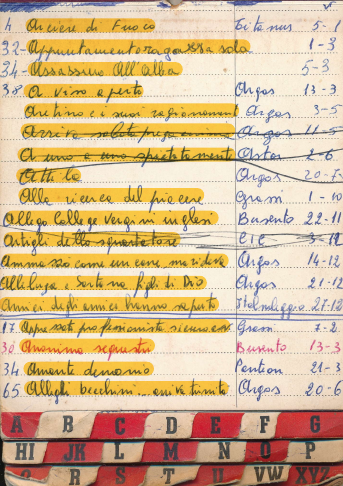 4 Arciere di Fuoco Titanus 5-1
32- Appuntamento ragazza sola 1-3
34- Assassino All'alba 5-3
38 A viso aperto Argos 13-3
Antino e i suoi ragionamenti Argos 3-5
Arriva sabata Argos 11-5
A uno a uno spietatamente Astor 2-6
Attila Argos 20-7
Alla ricerca del piacere Grassi 1-10
Allegro College vergini inglesi Busento 22-11
Artigli dello squartatore CIC 3-12
Ammazzo come un cane ma rideva Argos 14-12
Alleluja e Sartana figli di Dio Argos 21-12
Amici degli amici hanno saputo Italnoleggio 27-12
17 App. sott. professionista sicurezza Grassi 7-2
30 Anonima sequestri Busento 13-3
34 Amante demonio Pantion 21-3
65 Allegri becchini... arriva trinità Argos 20-6
A B C D E F G
HI JK L M N O P
Q R S T U VW XYZ